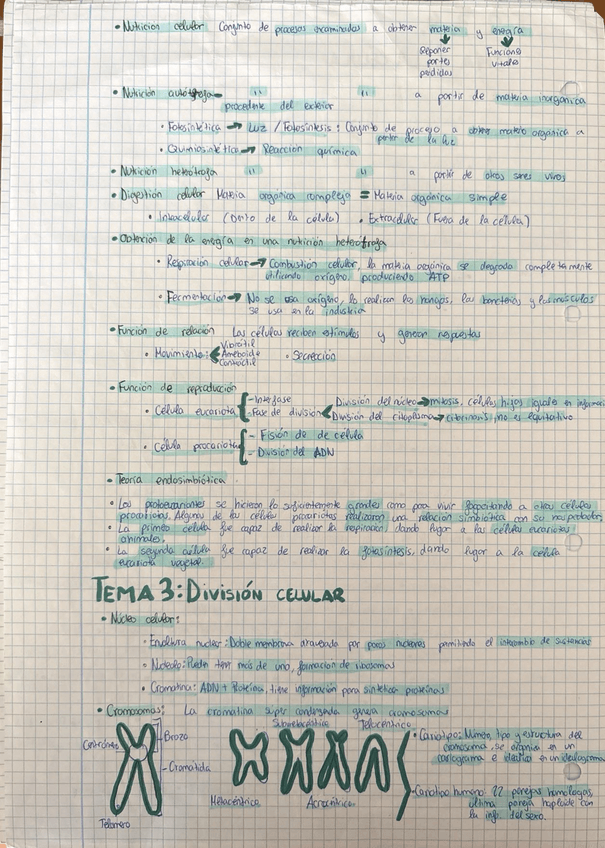 • Nutrición celular Conjunto de procesos encaminados a obtener materia y energía
Reponer partes perdidas
Funciones vitales
• Nutrición autótrofa → " " a partir de materia inorgánica
procedente del exterior
• Fotosintética → Luz / Fotosíntesis: Conjunto de proceso a obtener materia orgánica a
partir de la luz
• Quimiosintética → Reacción química
• Nutrición heterótrofa " " a partir de otros seres vivos
• Digestión celular Materia orgánica compleja = Materia orgánica simple
• Intracelular (Dentro de la célula) • Extracelular (Fuera de la célula)
• Obtención de la energía en una nutrición heterótrofa
• Respiración celular → Combustión celular, la materia orgánica se degrada completamente
utilizando oxígeno, produciendo ATP
• Fermentación → No se usa oxígeno, lo realizan los hongos, las bacterias y los músculos
se usa en la industria
• Función de relación Las células reciben estímulos y generan respuestas
• Movimiento: Vibrátil
Ameboide
Contráctil
• Secreción
• Función de reproducción
• Célula eucariota - Interfase
- Fase de división
División del núcleo → mitosis, células hijas iguales en
División del citoplasma → citocinesis, no es equitativo
• Célula procariota - Fisión de de célula
- División del ADN
• Teoría endosimbiótica
• Los protoeucariontes se hicieron lo suficientemente grandes como para vivir fagocitando a otras células
procariotas. Algunas de las células procariotas realizaron una relación simbiótica con su hospedador
• La primera célula fue capaz de realizar la respiración dando lugar a las células eucariotas
animales.
• La segunda célula fue capaz de realizar la fotosíntesis, dando lugar a la célula
eucariota vegetal.
TEMA 3: División CELULAR
• Núcleo celular:
• Envoltura nuclear: Doble membrana atravesada por poros nucleares permitiendo el intercambio de sustancias
• Nucleolo: Pueden tener más de uno, formación de ribosomas
• Cromatina: ADN + Proteína, tiene información para sintetizar proteínas
• Cromosomas: La cromatina super condensada genera cromosomas
Centrómero
Brazo
Cromátida
Telómero
Submetacéntrico
Telocéntrico
Metacéntrico
Acrocéntrico
• Cariotipo: Número, tipo y estructura del
cromosoma, se organiza en un
cariograma e idealiza en un ideograma
- Cariotipo humano: 22 parejas homólogas,
última pareja haploide con
la info. del sexo.